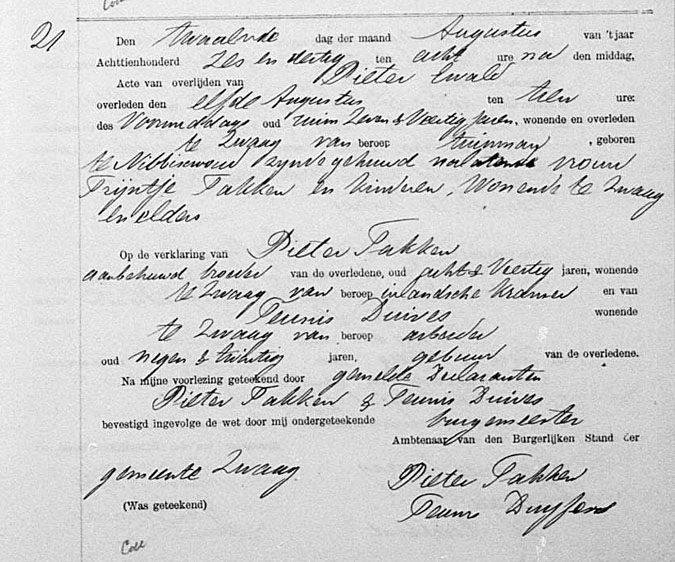 21
Den twaalfde dag der maand Augustus van 't jaar
Achttienhonderd zes en dertig ten acht ure na den middag,
Acte van overlijden van Pieter Ewald
overleden den elfde Augustus ten tien ure:
des Voormiddags oud ruim Zeven & Veertig Jaren, wonende en overleden
te Zwaag van beroep tuinman, geboren
te Nibbixwoud zynde gehuwd nalatende vrouw
Trijntje Takken en kinderen, Wonende te Zwaag
en elders
Op de verklaring van Pieter Takken
aanbehuwd broeder van de overledene, oud acht & Veertig jaren, wonende
te Zwaag van beroep inlandsche Kramer en van
Teunis Duives wonende
te Zwaag van beroep arbeider
oud negen & twintig jaren, gebuur van de overledene.
Na mijne voorlezing geteekend door gemelde Declaranten
Pieter Takken & Teunis Duives
bevestigd ingevolge de wet door mij ondergeteekende burgemeester
Ambtenaar van den Burgerlijken Stand der
gemeente Zwaag.
Pieter Takken
(Was geteekend)
Teunis
Coll